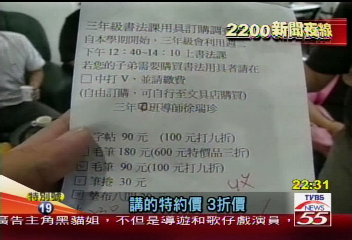 2200新聞夜線
三年級書法課用具訂購調
自本學期開始、三年級會利用週二
下午12:40~14:10上書法課
若您的子弟需要購買書法用具者請在
□中打V，並請繳費
(自由訂購，可自行至文具店購買)
三年 班導師徐瑞珍
字帖 90元 (100元打九折)
毛筆 180元(600元特價品三折)
90元 (100元打九折)
筆捲 30元
特別號
19
講的特約價 3折價
22:31
TVBS
NEWS
55
廣告主角黑貓姐，不但是導遊和歌仔戲演員，